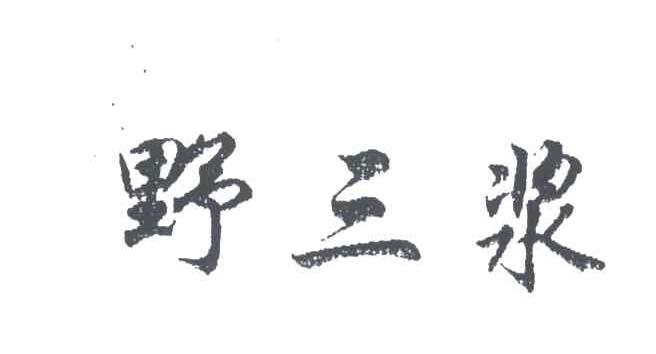 野三浆